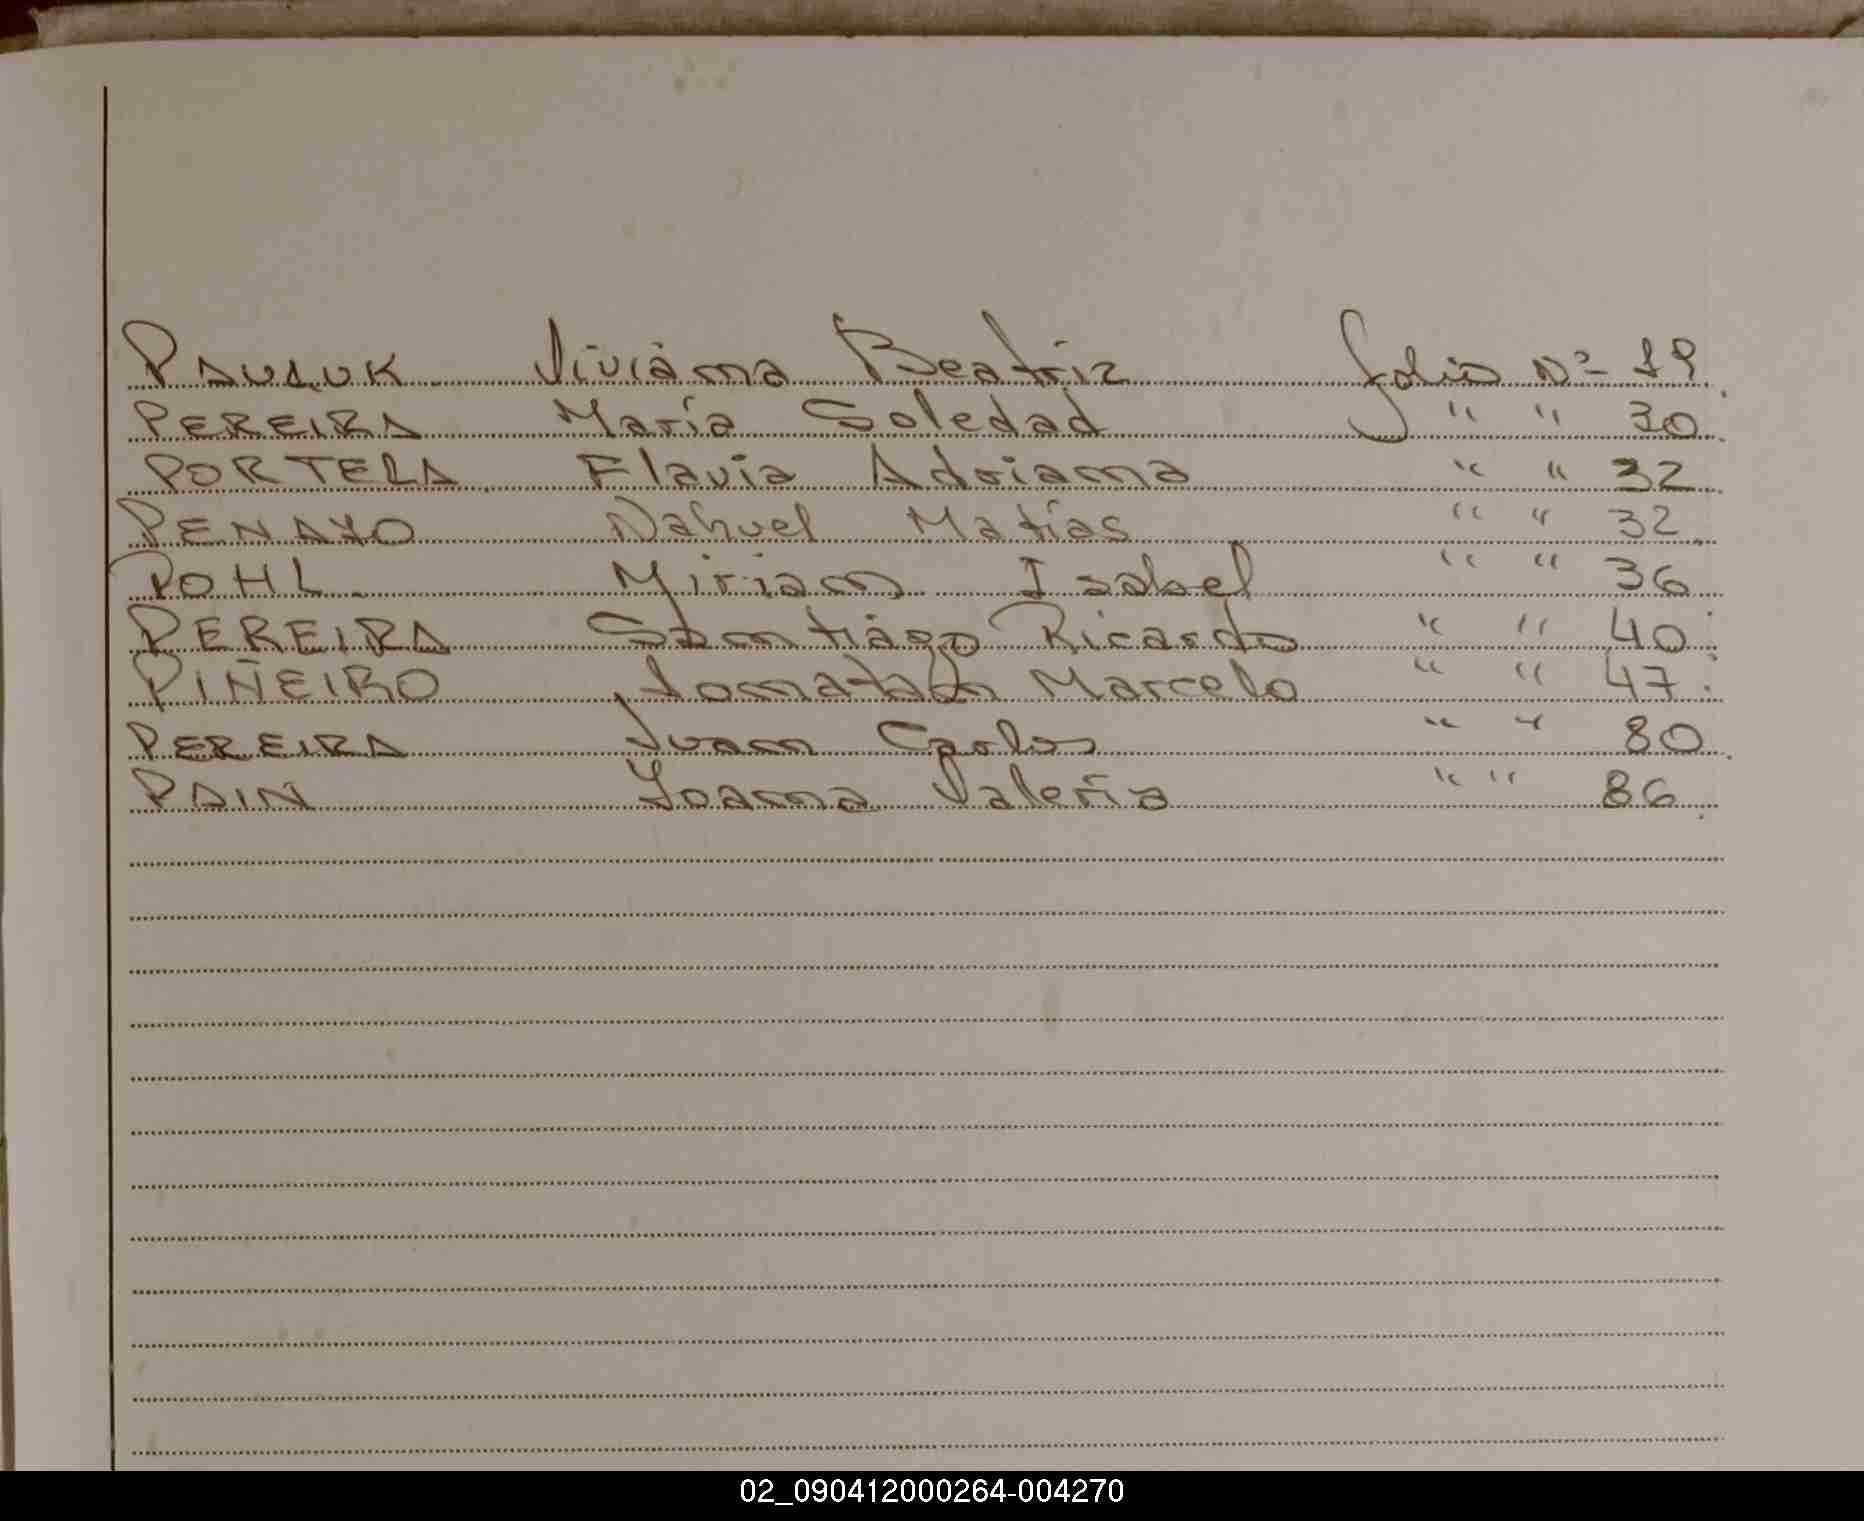 PAULUK Viviana Beatriz folio Nº 19
PEREIRA María Soledad " " 30
PORTELA Flavia Adriana " " 32
PENAYO Nahuel Matías " " 32
POHL Miriam Isabel " " 36
PEREIRA Santiago Ricardo " " 40
PIÑEIRO Jonatah Marcelo " " 47
PEREIRA Juan Carlos " " 80
PAIN Yoana Valeria " " 86
02_090412000264-004270